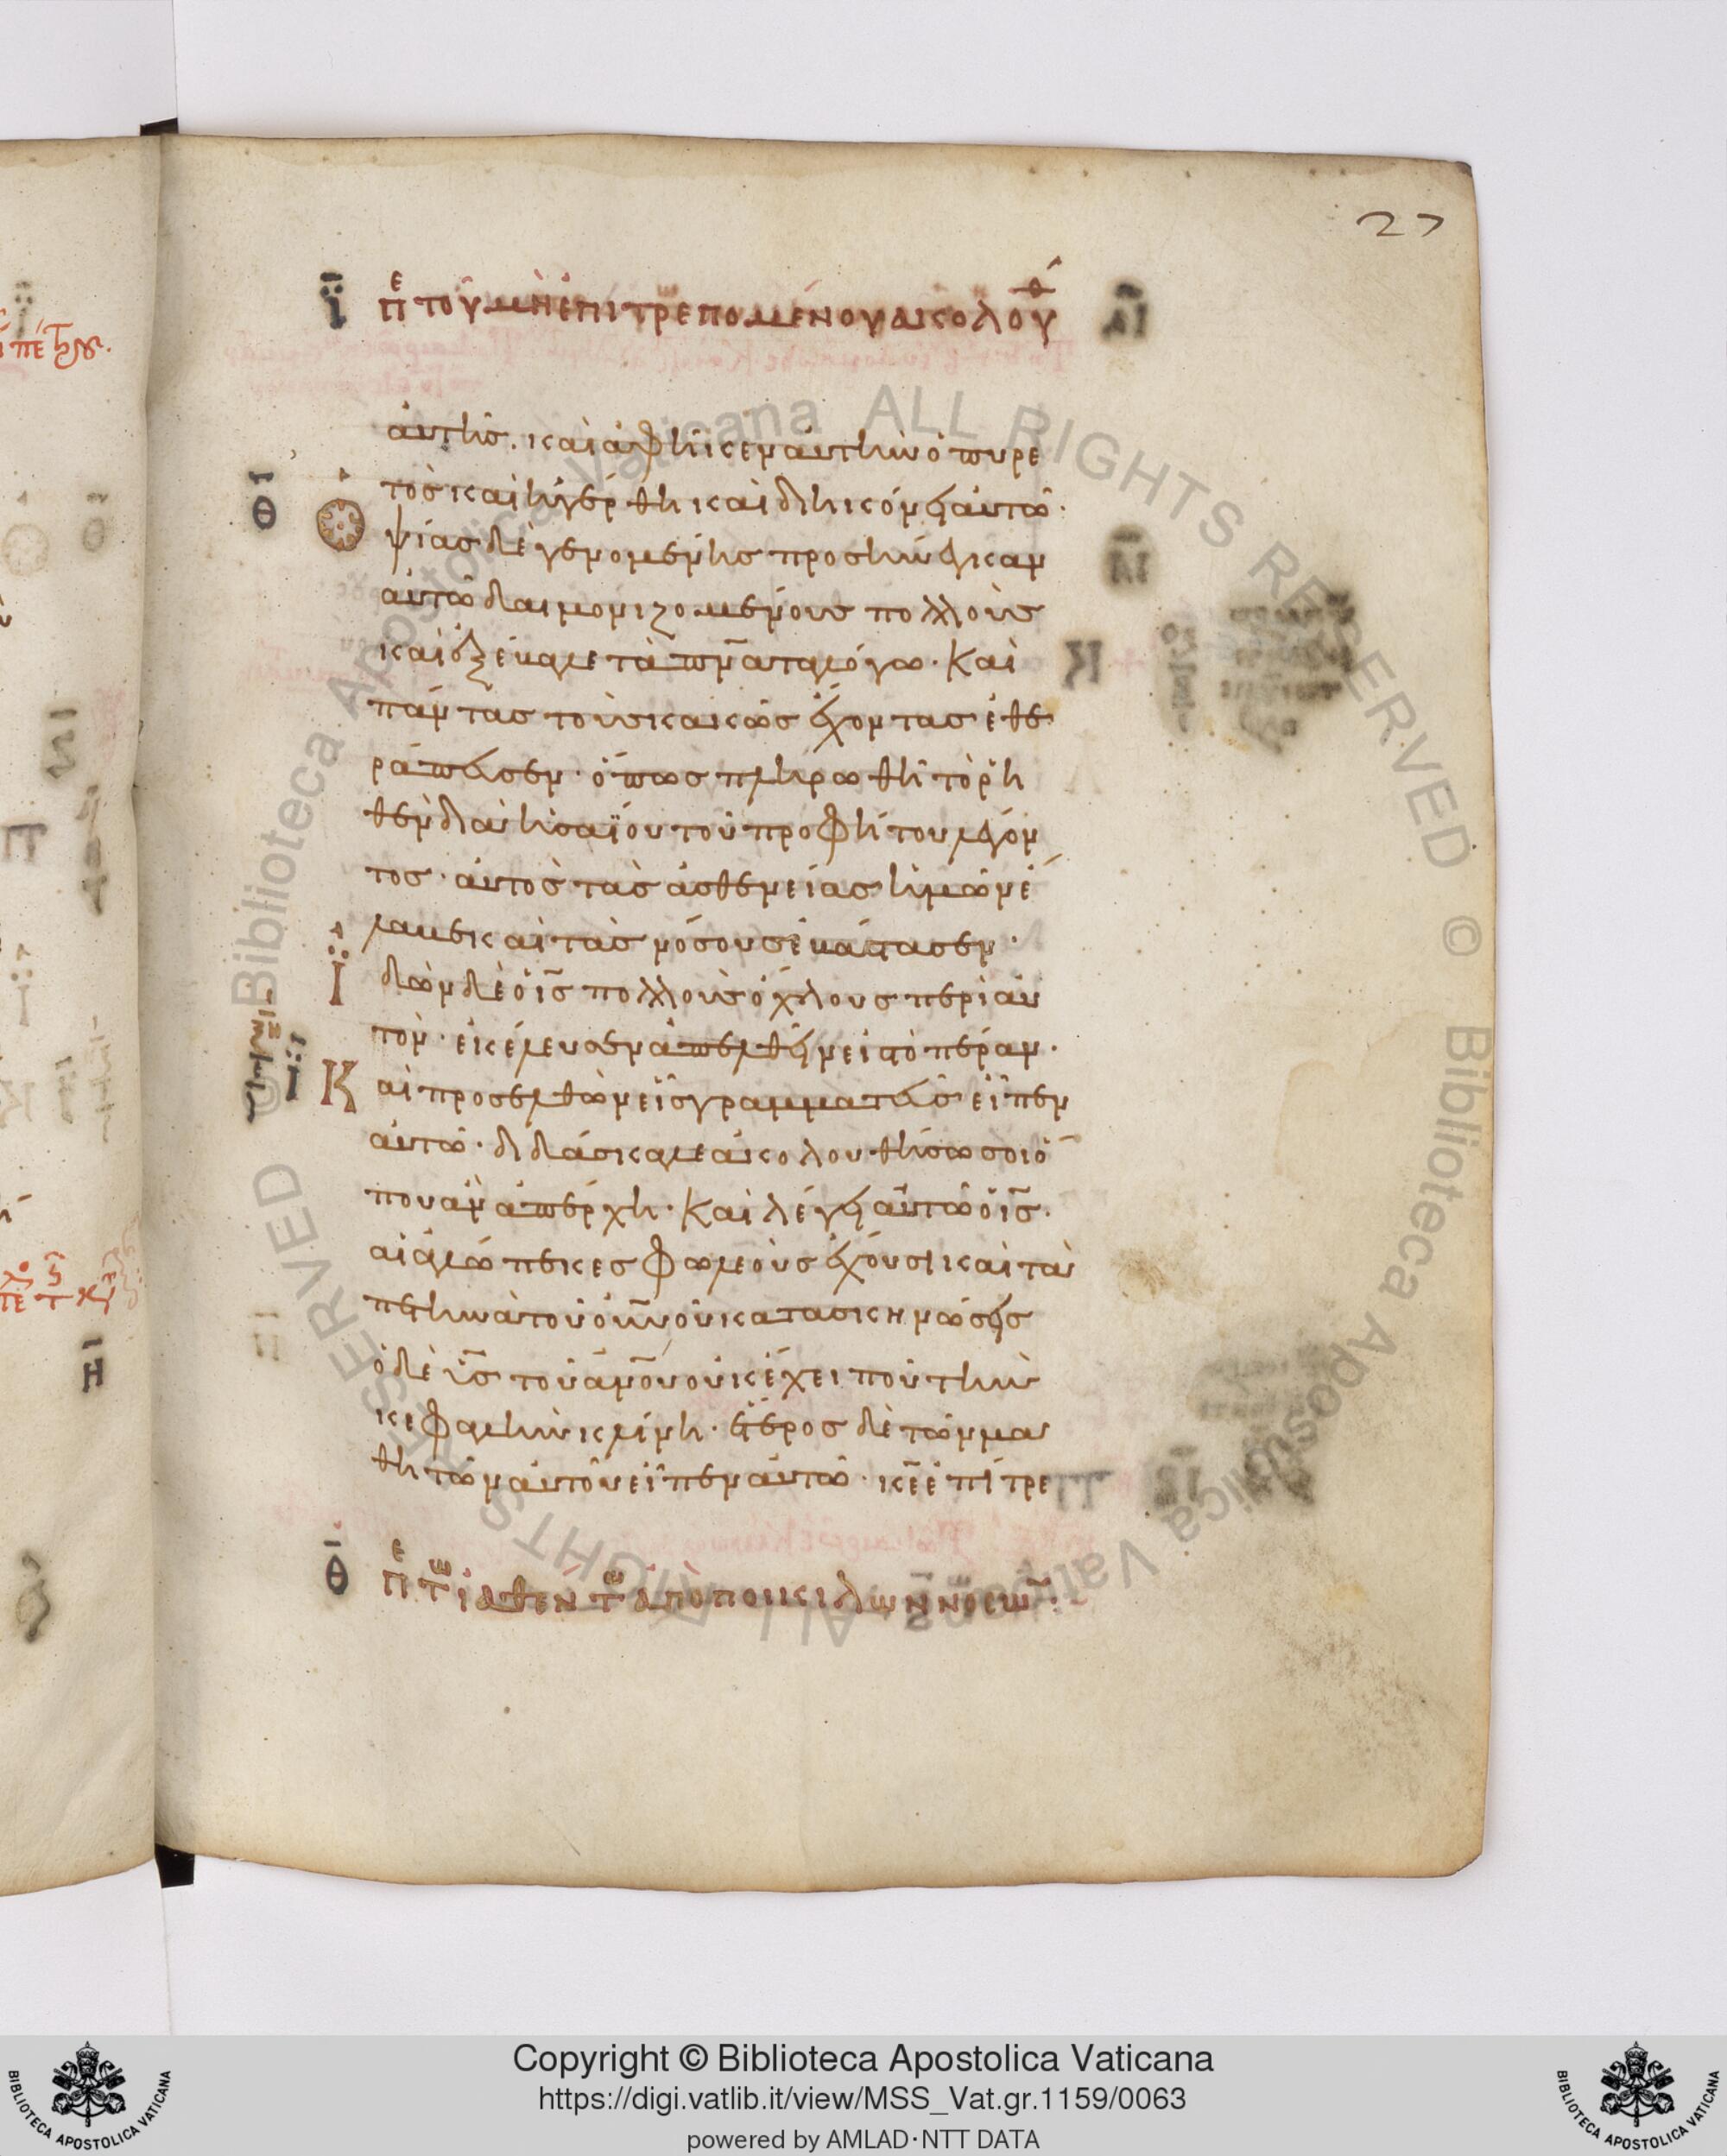 27
ϊ πε τοῦ μὴ ἐπιτρεπομένου ἀκολουθ
αὐτῆς. καὶ ἀφῆκεν αὐτὴν ὁ πυρε
τὸς καὶ ἠγέρθη καὶ διηκόνει αὐτῶ·
θ Ὀ
ψίας δὲ γενομένης προσήνεγκαν
αὐτῶ δαιμονιζομένους πολλοὺς
καὶ ἐξέβαλε τὰ πνατα λόγω· Καὶ
πάντας τοὺς κακῶς ἔχοντας ἐθε
ράπευσεν· ὅπως πληρωθῆ τὸ ῥη
θὲν διὰ ἠσαΐου τοῦ προφήτου λέγον
τος· αὐτὸς τὰς ἀσθενείας ἡμῶν ἔ
λαβε καὶ τὰς νόσους ἐβάστασεν·
Ἰδὼν δὲ ὁ ις πολλοὺς ὄχλους περὶ αὐ
τὸν· ἐκέλευσεν ἀπελθεῖν εἰς τὸ πέραν·
Καὶ προσελθὼν εἷς γραμματεὺς εἶπεν
αὐτῶ· διδάσκαλε ἀκολουθήσω σοι ὅ
που ἂν ἀπέρχη· Καὶ λέγει αὐτῶ ὁ ις.
αἱ ἀλώπεκες φωλεοὺς ἔχουσι καὶ τὰ
πετηνὰ τοῦ οὐνου κατασκηνώσεις
ὁ δὲ υς τοῦ ανου οὐκ ἔχει ποῦ τὴν
κεφαλὴν κλίνη· ἕτερος δὲ τῶν μα
θητῶν αὐτοῦ εἶπεν αὐτῶ· κε ἐπίτρε
θ πε τω ἰαθέντω ἀπὸ ποικίλων νόσω·
Copyright © Biblioteca Apostolica Vaticana
https://digi.vatlib.it/view/MSS_Vat.gr.1159/0063
powered by AMLAD·NTT DATA
BIBLIOTECA APOSTOLICA VATICANA
BIBLIOTECA APOSTOLICA VATICANA
© Biblioteca Apostolica Vaticana ALL RIGHTS RESERVED
© Biblioteca Apostolica Vaticana ALL RIGHTS RESERVED